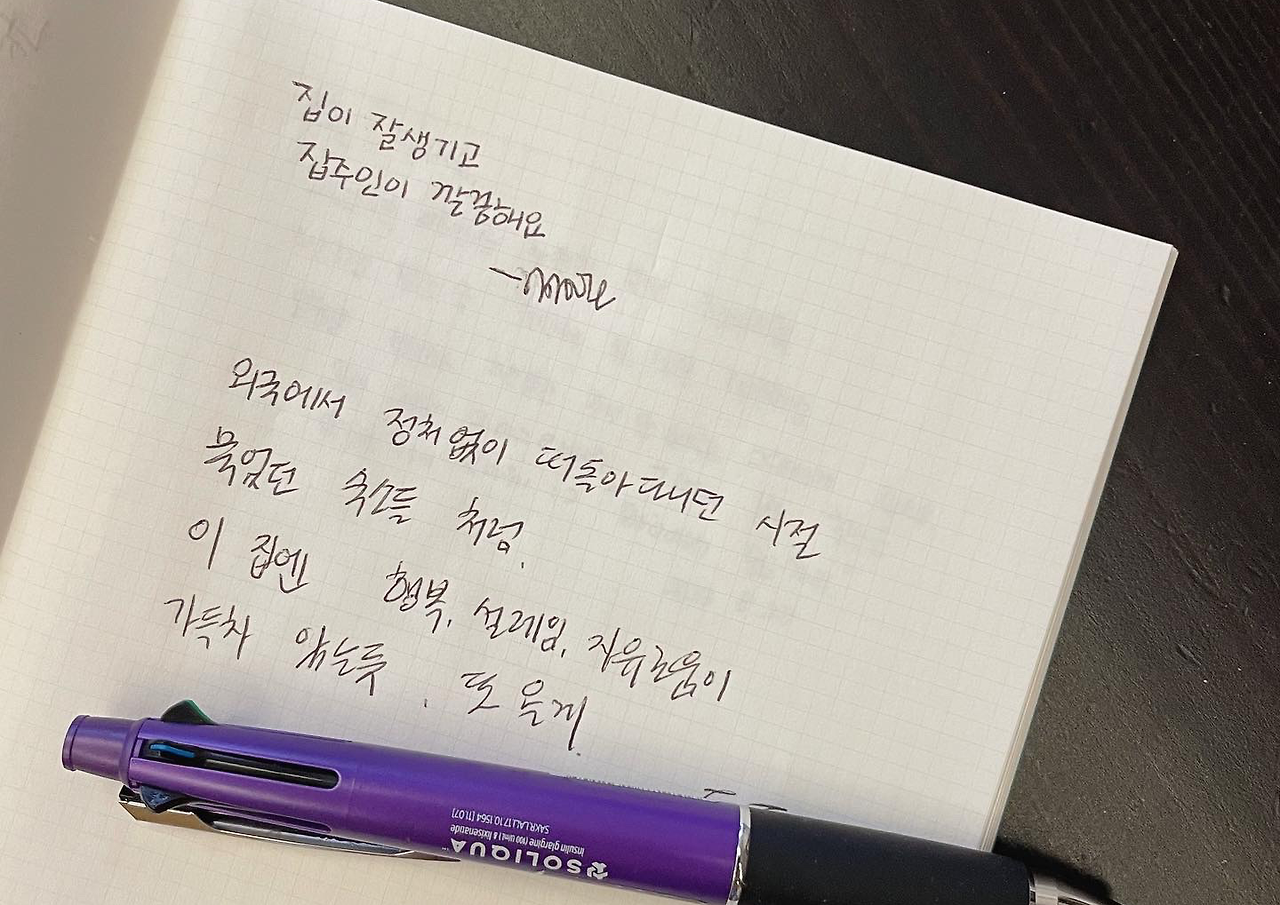 집이 잘생기고
집주인이 깔끔해요
외국에서 정처없이 떠돌아다니던 시절
묵었던 숙소들 처럼.
이 집엔 행복, 설레임, 자유로움이
가득차 있는듯. 또 올게.
SOLIQUA™
insulin glargine (100 U/mL) & lixisenatide
SAKR.LALI.17.10.1564 [11.07]